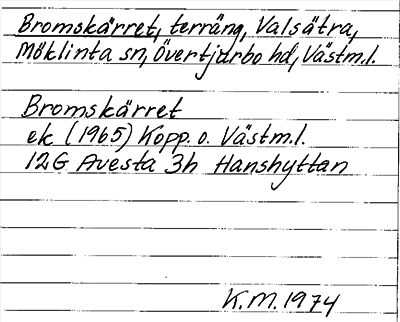 Bromskärret, terräng, Valsätra,
Möklinta sn, Övertjurbo hd, Västm.l.
Bromskärret
ek (1965) Kopp. o. Västm.l.
12G Avesta 3h Hanshyttan
K.M. 1974